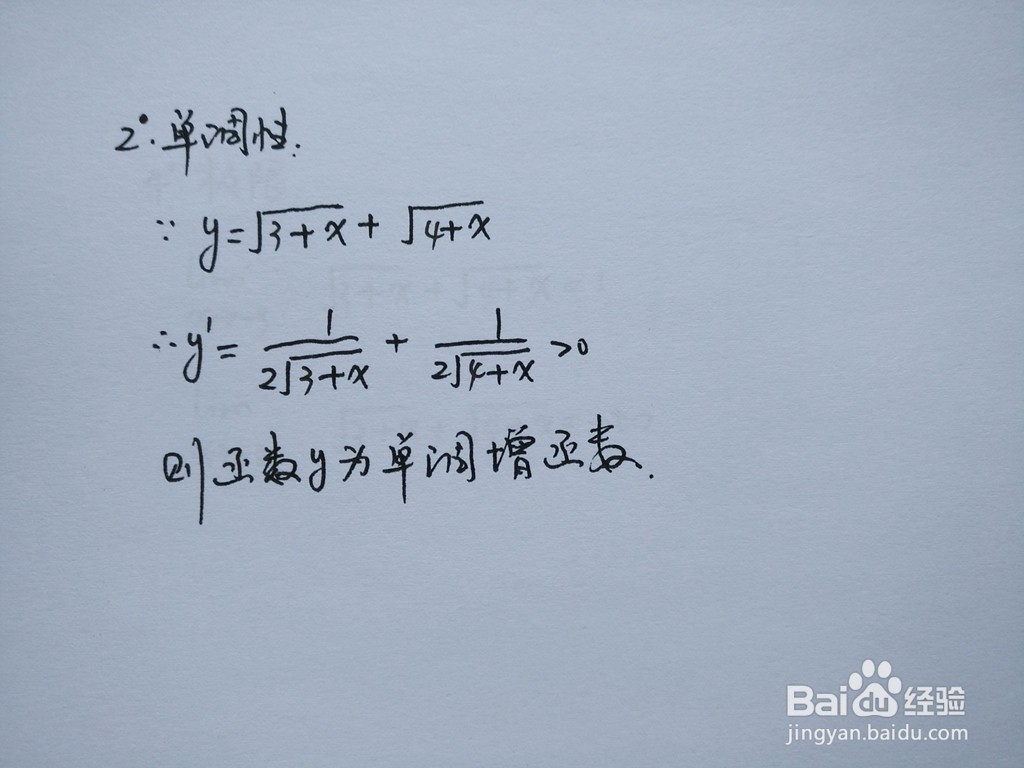 2°. 单调性.
∵ y=√(3+x) + √(4+x)
∴ y' = 1/(2√(3+x)) + 1/(2√(4+x)) >0
则函数y为单调增函数.
Baidu经验
jingyan.baidu.com